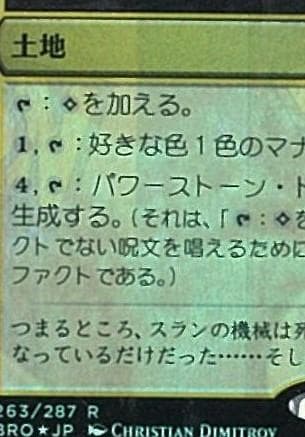 土地
：◇を加える。
1, ：好きな色1色のマナ
4, ：パワーストーン・ト
生成する。（それは、「：◇を
クトでない呪文を唱えるために
ファクトである。）
つまるところ、スランの機械は死
なっているだけだった……そし
263/287 R
BRO★JP CHRISTIAN DIMITROV